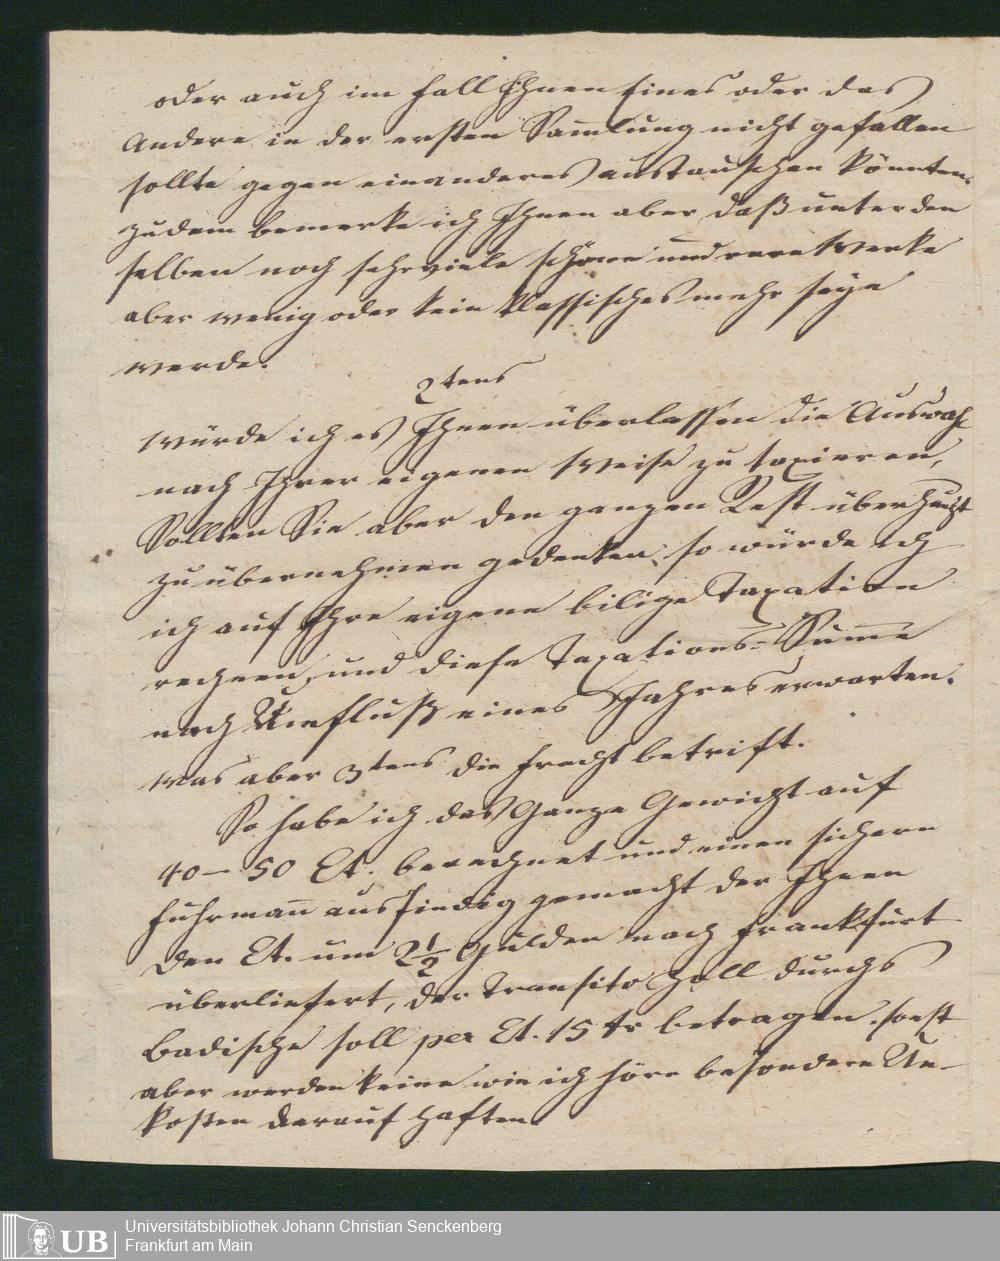 oder auch im Fall Ihnen Eines oder das
Andere in der ersten Sam̅lung nicht gefallen
sollte gegen ein anderes austauschen könnten.
zudem bemerke ich Ihnen aber, daß unter den
selben noch sehr viele schöne und rare Werke
aber wenig oder kein klassisches mehr seyn
werde.
2tens
würde ich es Ihnen überlassen die Auswahl
nach Ihrer eigenen Weise zu taxieren,
Sollten Sie aber den ganzen Rest überhaupt
zu übernehmen gedenken, so würde ich
ich auf Ihre eigene bilige Taxation
rechnen, und diese Taxations-Sum̅e
nach Umfluß eines Jahres erwarten.
was aber 3tens die Fracht betrift.
So habe ich das Ganze Gewicht auf
40 – 50 Ct. berechnet und einen sichern
Fuhrman̅ ausfindig gemacht der Ihnen
den Ct. um 2 1/2 Gulden nach Frankfurt
überliefert, der Transito Zoll durchs
Badische soll per Ct. 15 xr betragen, sonst
aber werden keine wie ich höre besondere Un-
kosten darauf haften.
UB
Universitätsbibliothek Johann Christian Senckenberg
Frankfurt am Main